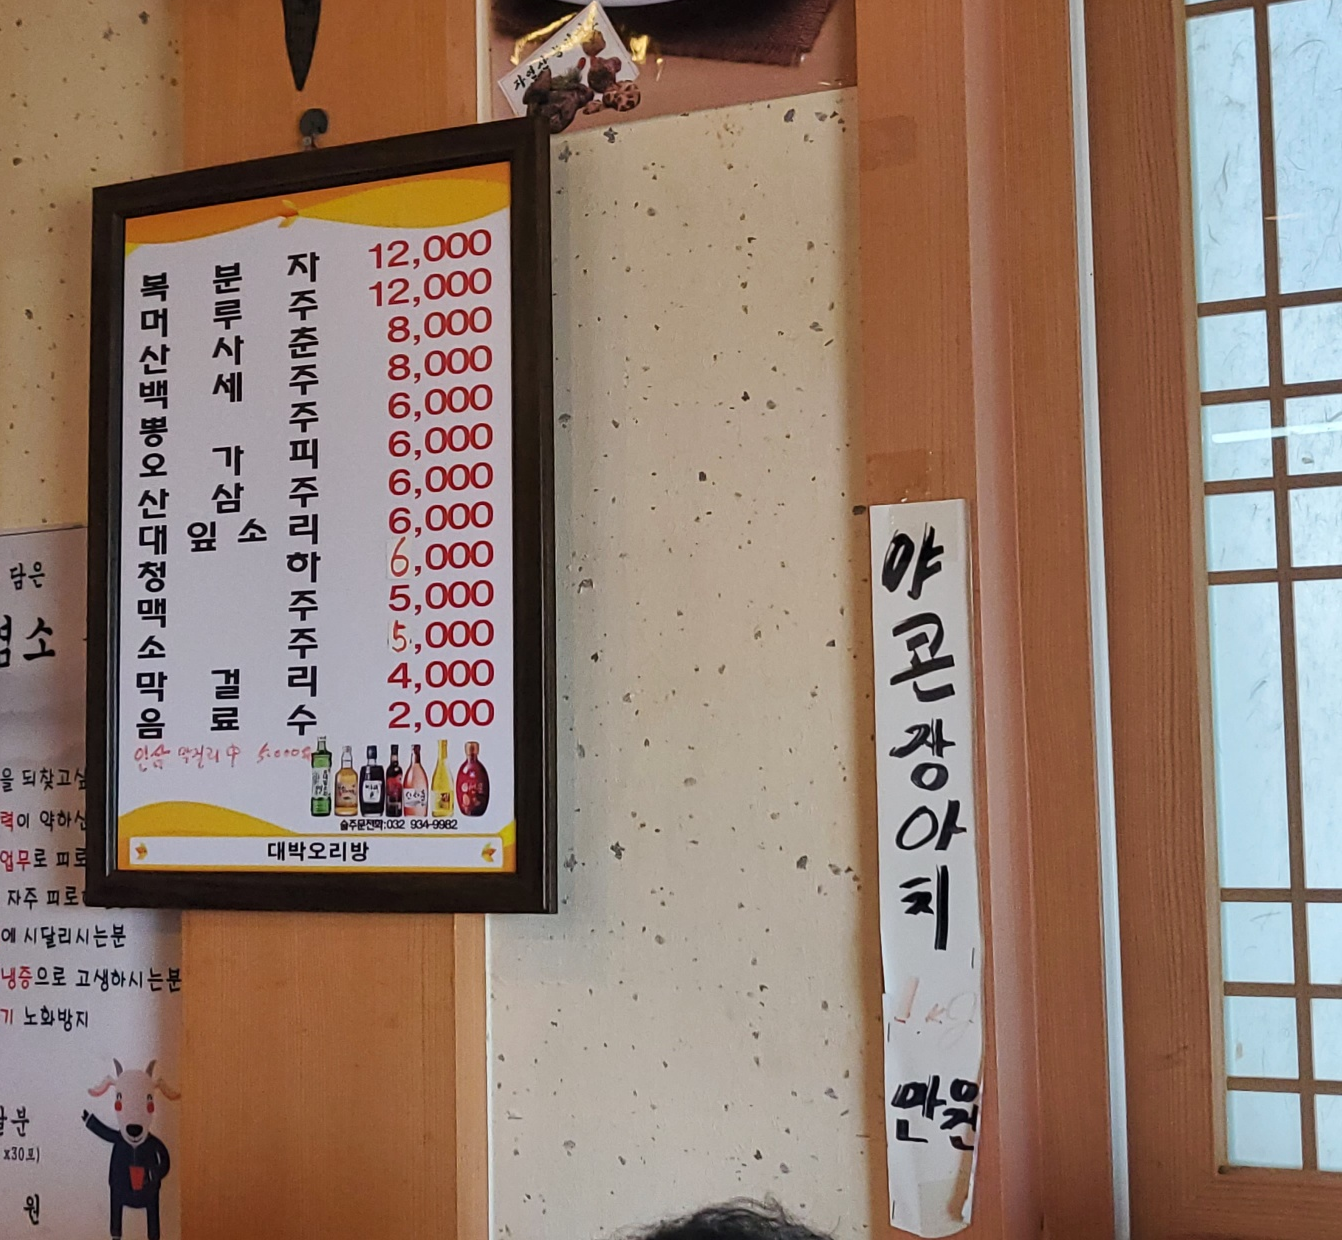 자연산
복분자 12,000
머루주 12,000
산사춘 8,000
백세주 8,000
뽕주 6,000
오가피 6,000
산삼주 6,000
대잎소리 6,000
청하 6,000
맥주 5,000
소주 5,000
막걸리 4,000
음료수 2,000
인삼 막걸리 中 5,000원
술주문전화:032 934-9982
대박오리방
야콘장아치
1kg
만원
담은
염소
을 되찾고싶
력이 약하신
업무로 피로
자주 피로
에 시달리시는분
냉증으로 고생하시는분
기 노화방지
달분
x30포)
원